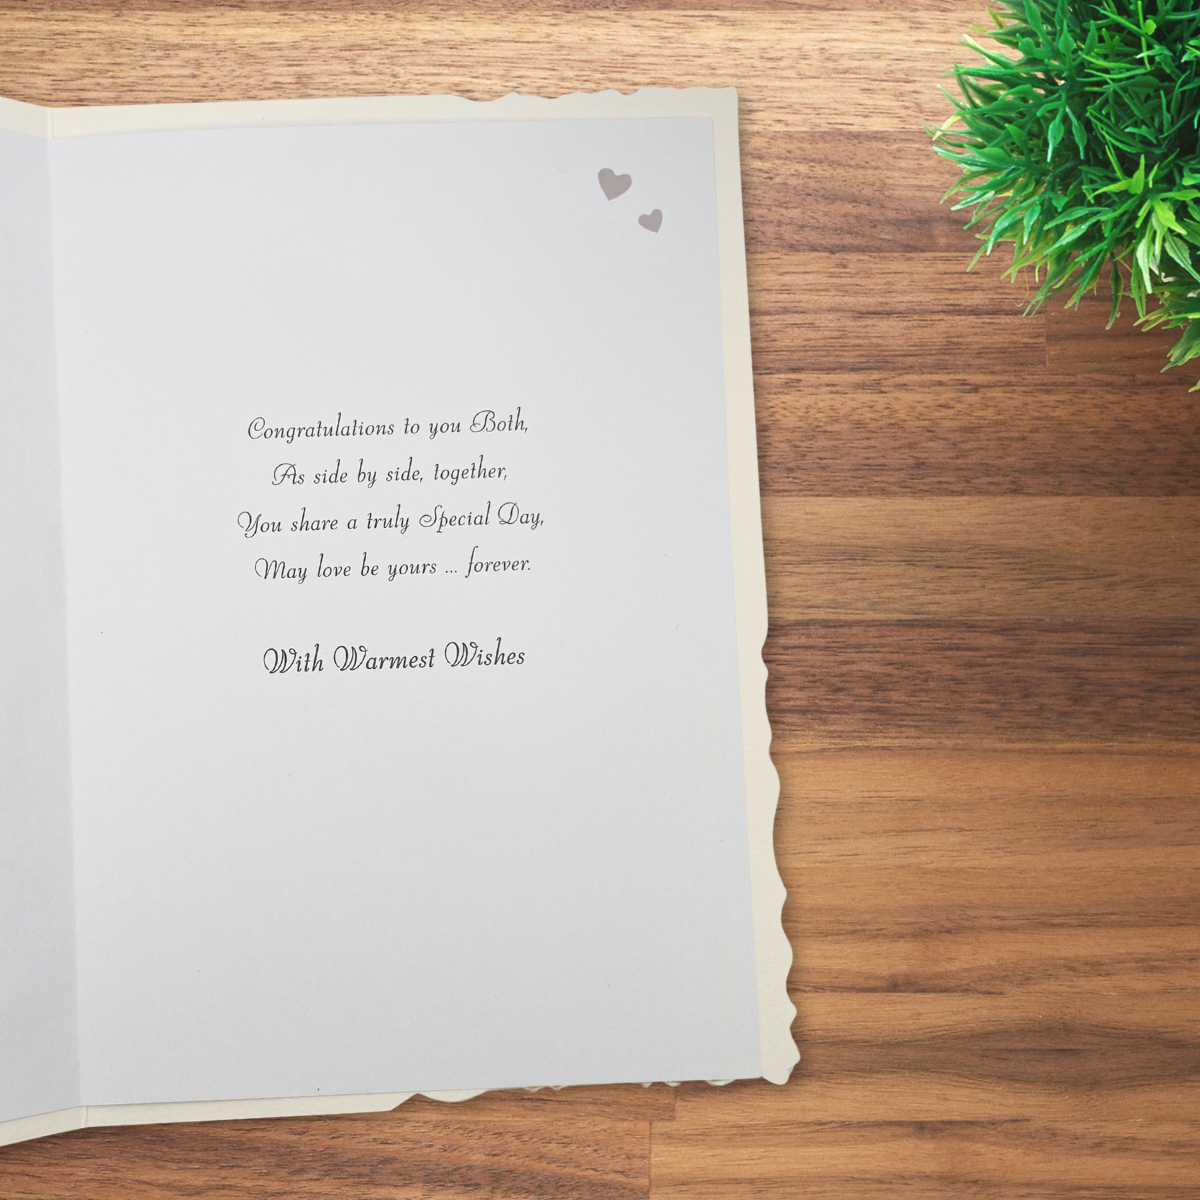 Congratulations to you Both,
As side by side, together,
You share a truly Special Day,
May love be yours ... forever.
With Warmest Wishes